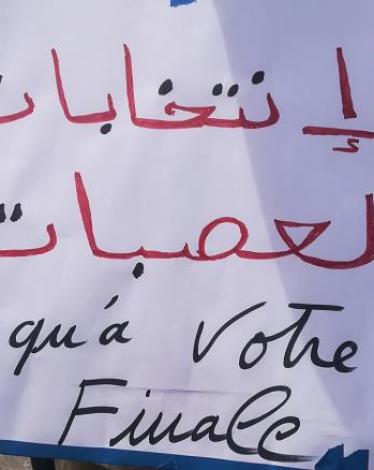 إنتخابات
لعصبات
qu'à Votre
Finale